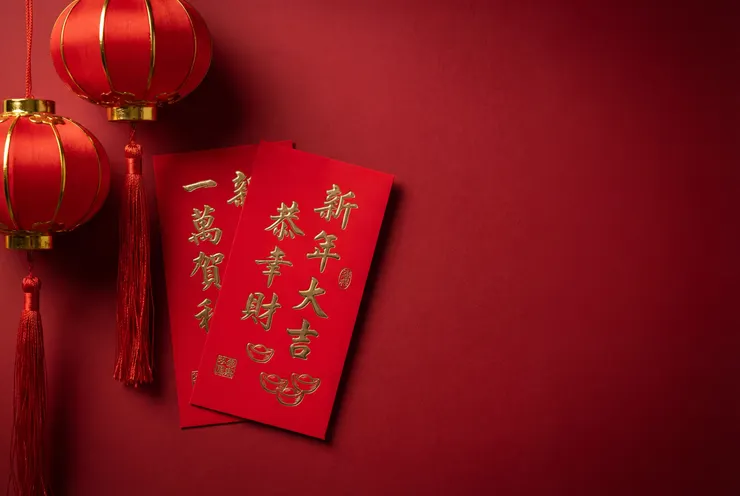 新年大吉
恭幸財
一萬賀